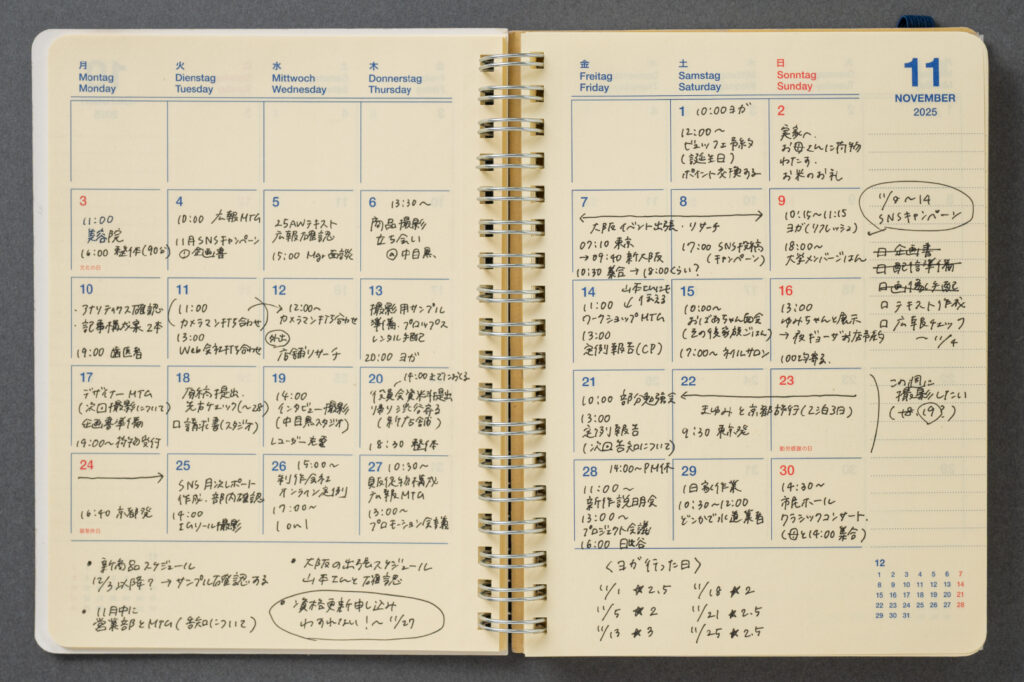 月
Montag
Monday
火
Dienstag
Tuesday
水
Mittwoch
Wednesday
木
Donnerstag
Thursday
3
11:00
美容院
16:00 整体(90分)
文化の日
4
10:00 広報MTG
11月SNSキャンペーン
①企画書
5
25AWテキスト
広報確認
15:00 Mgr面談
6
13:30〜
商品撮影
立ち会い
中目黒
10
アナリティクス確認
記事構成案 2本
19:00 歯医者
11
11:00
カメラマン打ち合わせ
13:00
Web会社打ち合わせ
12
12:00〜
カメラマン打ち合わせ
外出
店舗リサーチ
13
撮影用サンプル
準備・プロップス
レンタル手配
20:00 ヨガ
17
デザイナーMTG
(次回撮影について)
企画書準備
19:00〜荷物受け
18
原稿提出
先方チェック(〜28)
請求書(スタジオ)
19
14:00
インタビュー撮影
(中目黒スタジオ)
レコーダー充電
20
14:00までにおくる
役員会資料提出
帰りに立ち寄る
18:30 整体
24
16:40 京都発
振替休日
25
SNS月次レポート
作成・部内確認
14:00
撮影
26
15:00〜
制作会社
オンライン定例
17:00〜
1on1
27
10:30〜
販促物構成
広報MTG
13:00〜
プロモーション会議
• 新商品スケジュール
12/3以降? → サンプル確認する
• 11月中に
営業部とMTG(告知について)
• 大阪の出張スケジュール
山本さんと確認
• 資格更新申し込み
わすれない! 〜11/27
金
Freitag
Friday
土
Samstag
Saturday
日
Sonntag
Sunday
11
NOVEMBER
2025
1
10:00 ヨガ
12:00〜
ビュッフェ予約
(誕生日)
ポイント交換する
2
実家へ
お母さんに荷物
わたす.
お米のお礼
7
大阪イベント出張・リサーチ
07:10 東京
→ 09:40 新大阪
10:30 集合 → 18:00くらい?
8
17:00 SNS投稿
(キャンペーン)
9
10:15〜11:15
ヨガ(リフレッシュ)
18:00〜
大学メンバーごはん
11/8〜14
SNSキャンペーン
企画書
配信準備
画像手配
テキスト作成
広報チェック
〜11/4
14
山本さんにも
伝える
11:00
ワークショップMTG
13:00
定例報告(CP)
15
10:00〜
おばあちゃん面会
(その後家族ごはん)
17:00〜 ネイルサロン
16
13:00
ゆみちゃんと展示
→ 夜ギョーザお店予約
100均寄る.
21
10:00 部分勉強会
13:00
定例報告
(次回告知について)
22
まゆみと京都旅行(2泊3日)
9:30 東京発
23
勤労感謝の日
この週に
撮影したい
(18, 19?)
28
14:00〜PM休
11:00〜
新作説明会
13:00〜
プロジェクト会議
16:00 日比谷
29
1日家作業
10:30〜12:00
どこかで水道業者
30
14:30〜
市民ホール
クラシックコンサート.
(母と14:00集合)
〈ヨガ行った日〉
11/1 ★2.5
11/5 ★2
11/13 ★3
11/18 ★2
11/21 ★2.5
11/25 ★2.5
12
1 2 3 4 5 6 7
8 9 10 11 12 13 14
15 16 17 18 19 20 21
22 23 24 25 26 27 28
29 30 31